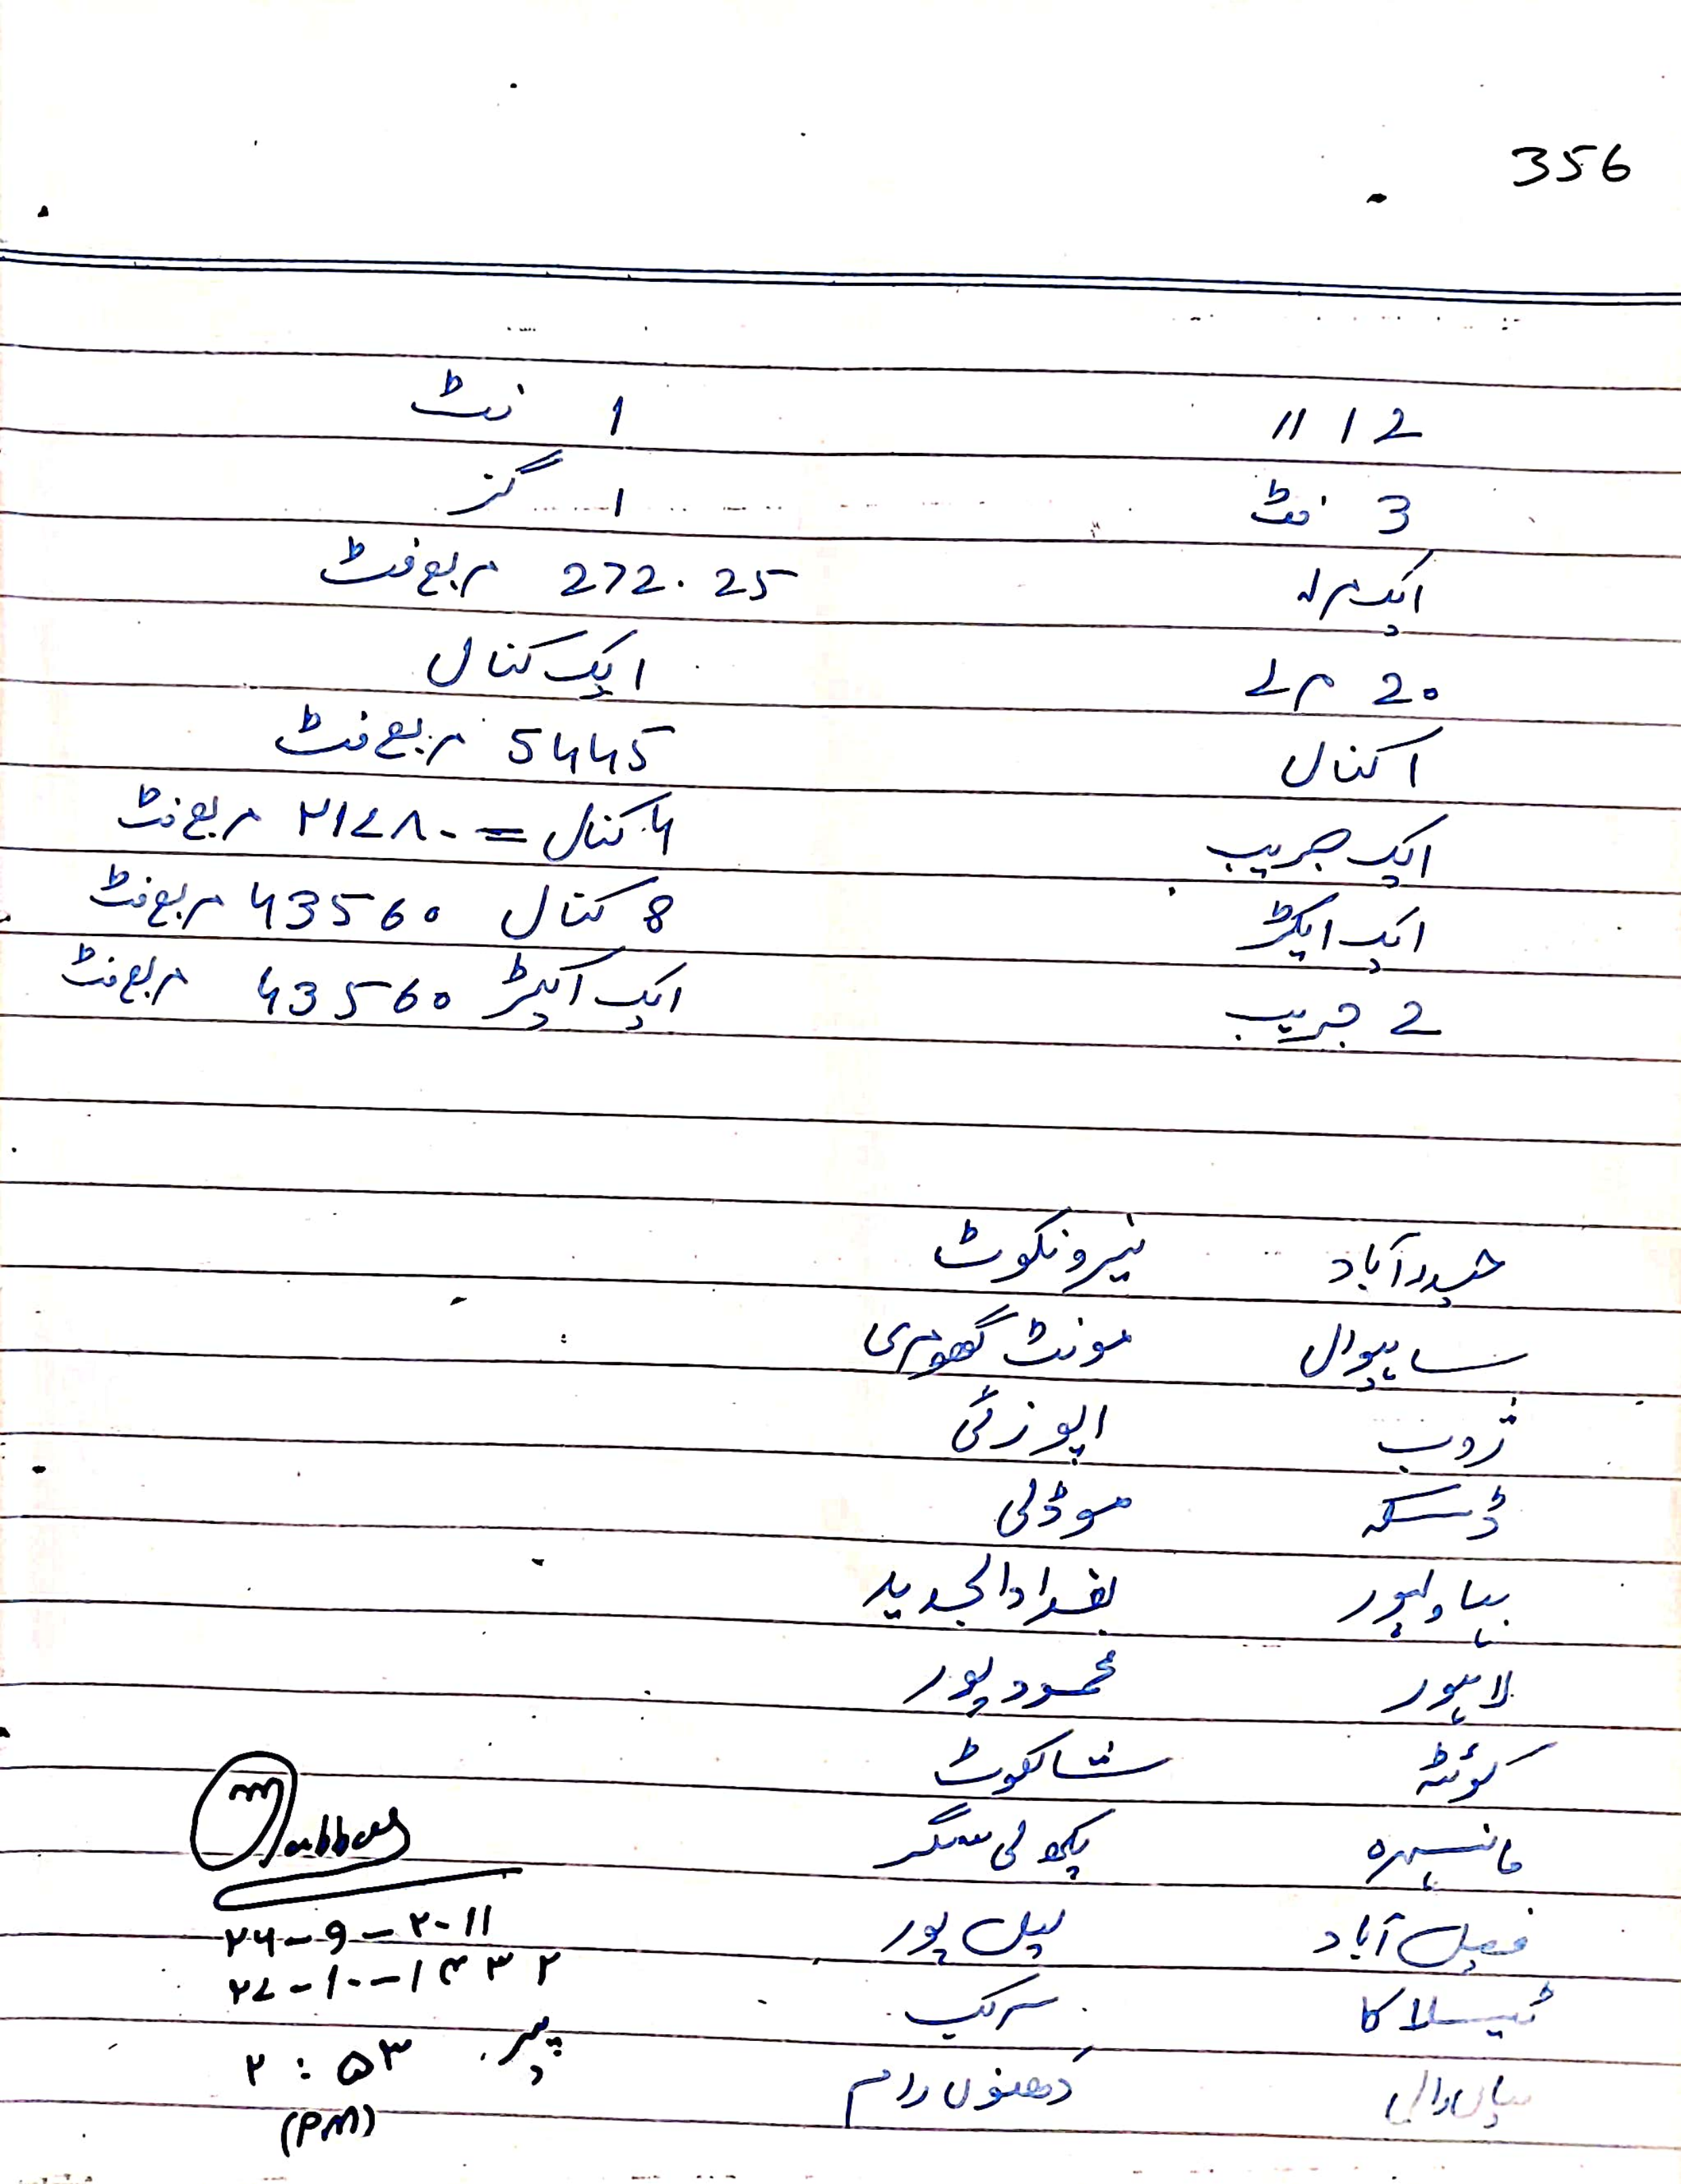 356
12 " 1 فٹ
3 فٹ 1 گز
ایک مرلہ 272.25 مربع فٹ
20 مرلے ایک کنال
1 کنال 5445 مربع فٹ
ایک جریب 4 کنال = ۲۱۷۸۰ مربع فٹ
ایک ایکڑ 8 کنال 43560 مربع فٹ
2 جریب ایک ایکڑ 43560 مربع فٹ
حیدرآباد نیرونکوٹ
ساہیوال مونٹ گھومری
ژوب اپوزئی
ڈسکہ موڈلی
بہاولپور بغدادالجدید
لاہور محمود پور
کوئٹہ شالکوٹ
مانسہرہ پکھلی سرگر
فیصل آباد لیل پور
ٹیسلا کا سرکپ
میاں والی دھنوں رام
۲۶-۹-۲۰۱۱
۲۷-۱۰-۱۴۳۲
پیر ۲:۵۳
(PM)